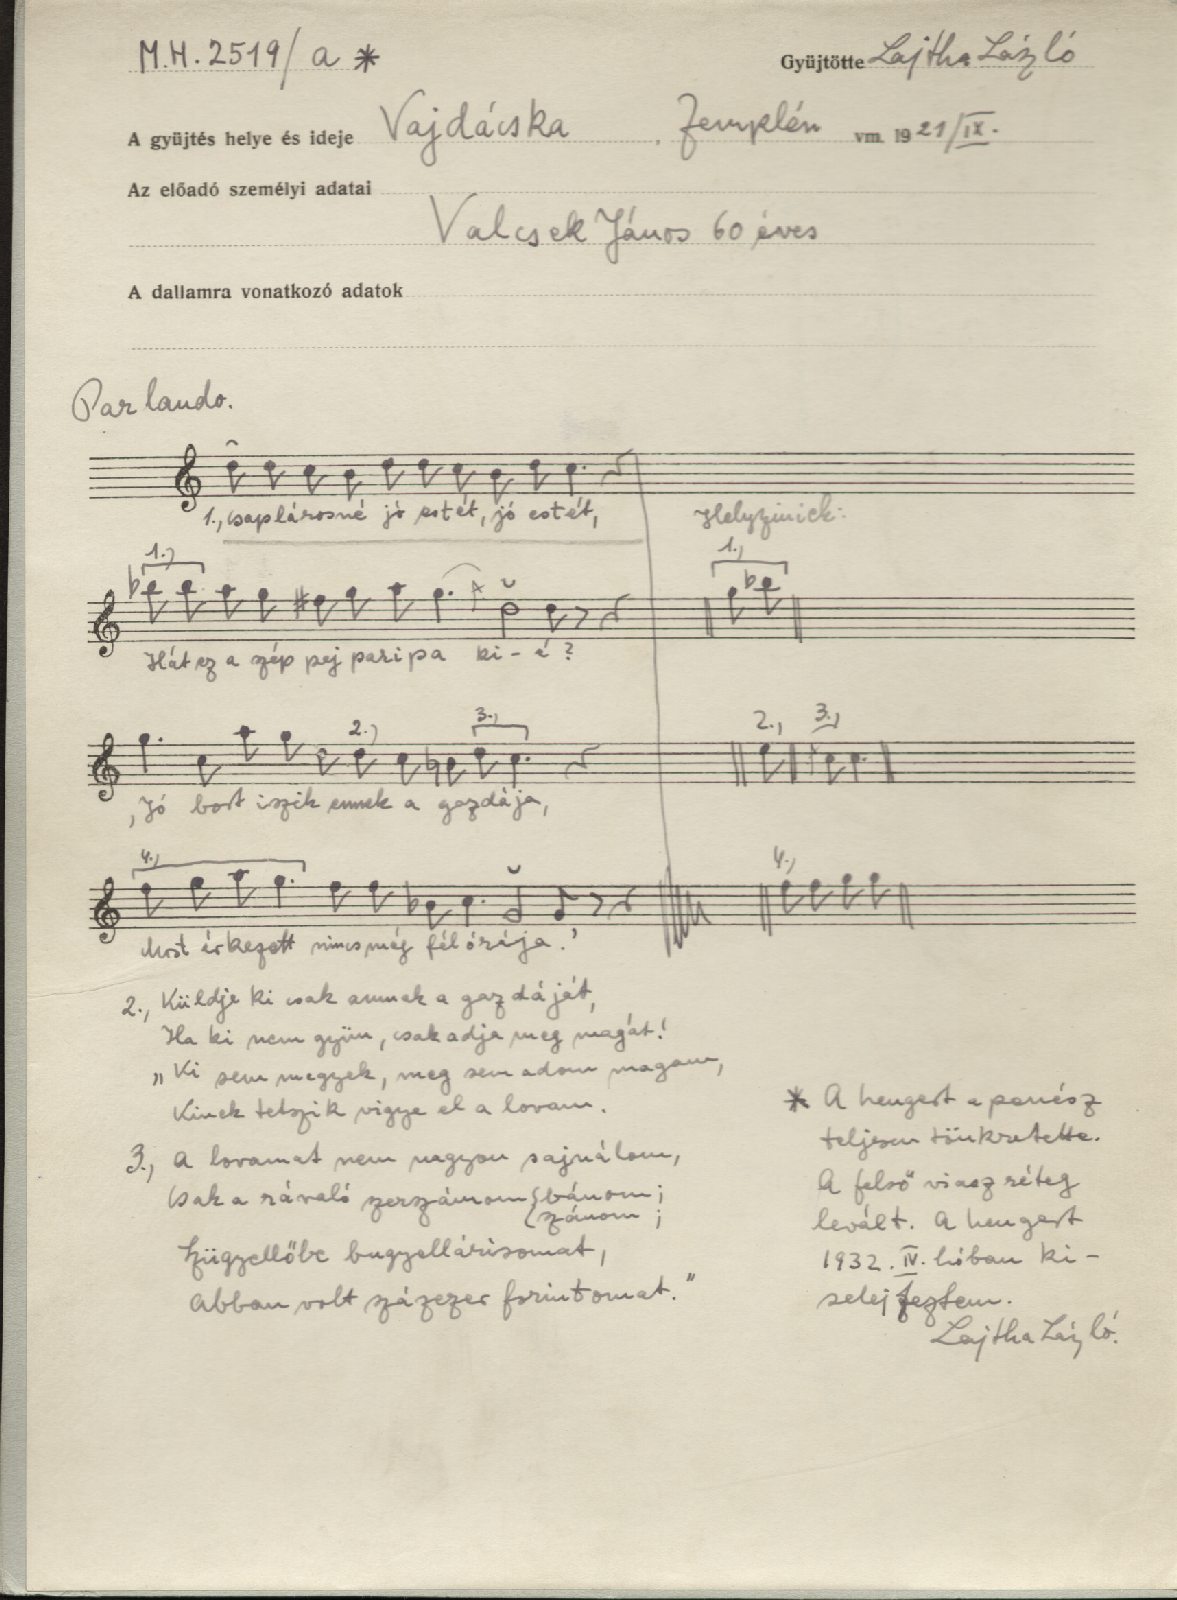 M.H. 2519/a *
Gyüjtötte Lajtha László
A gyüjtés helye és ideje Vajdácska, Zemplén vm. 1921/IX.
Az előadó személyi adatai
Valcsek János 60 éves
A dallamra vonatkozó adatok
Parlando.
1., Csaplárosné jó estét, jó estét,
Helysziniek:
1.,
1.,
Hát ez a szép pej paripa ki-é?
2.,
3.,
2., 3.,
„Jó bort iszik ennek a gazdája,
4.,
4.,
Most érkezett nincs még félórája."
2., Küldje ki csak annak a gazdáját,
Ha ki nem gyün, csak adja meg magát!
„Ki sem megyek, meg sem adom magam,
Kinek tetszik vigye el a lovam.
3., A lovamat nem nagyon sajnálom,
Csak a rávaló szerszámom {bánom;
{szánom;
Szügyellőbe bugyellárisomat,
Abban volt százezer forintomat."
* A hengert a penész
teljesen tönkretette.
A felső viaszréteg
levált. A hengert
1932. IV. hóban ki-
selejteztem.
Lajtha László.